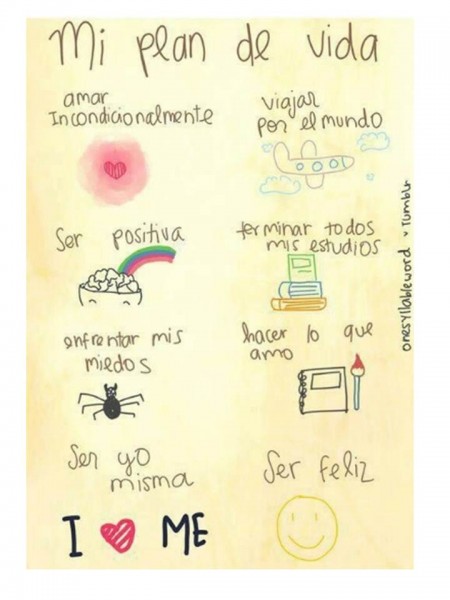 Mi plan de vida
amar
Incondicionalmente
viajar
por el mundo
Ser positiva
terminar todos
mis estudios
enfrentar mis
miedos
hacer lo que
amo
Ser yo
misma
I ♥ ME
Ser feliz
onesyllableword ♥ Tumblr